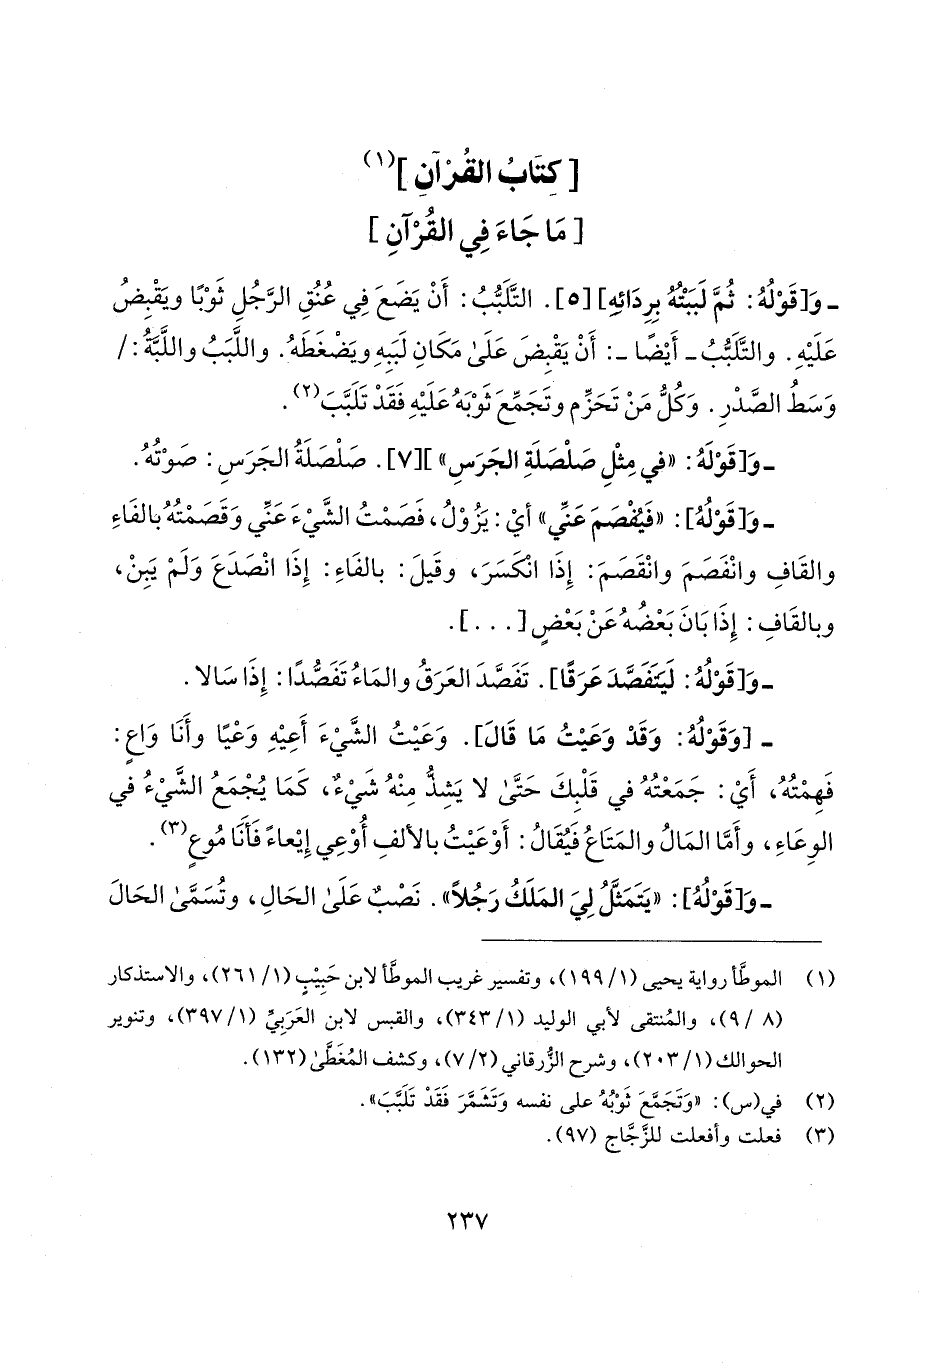 [كِتَابُ القُرْآنِ](١)
[مَا جَاءَ فِي القُرْآنِ]
ـ وَ[قَوْلُهُ: ثُمَّ لَبَبْتُهُ بِرِدَائِهِ][٥]. التَّلَبُّبُ: أَنْ يَضَعَ فِي عُنُقِ الرَّجُلِ ثَوْبًا ويَقْبِضُ
عَلَيْهِ. والتَّلَبُّبُ ـ أَيْضًا ـ: أَنْ يَقْبِضَ عَلَىٰ مَكَانِ لَبَبِهِ ويَضْغَطَهُ. واللَّبَبُ واللَّبَّةُ: /
وَسَطُ الصَّدْرِ. وَكُلُّ مَنْ تَحَزَّم وتَجَمِّعَ ثَوْبَهُ عَلَيْهِ فَقَدْ تَلَبَّبَ(٢).
ـ وَ[قَوْلَهُ: «في مِثْلِ صَلْصَلَةِ الجَرَسِ»][٧]. صَلْصَلَةُ الجَرَسِ: صَوْتُهُ.
ـ وَ[قَوْلُهُ]: «فَيُفْصَمَ عَنِّي» أيْ: يَزُوْلُ، فَصَمْتُ الشَّيْءَ عَنِّي وَقَصَمْتُهُ بالفَاءِ
والقَافِ وانْفَصَمَ وانْقَصَمَ: إِذَا انْكَسَرَ، وقيلَ: بالفَاءِ: إِذَا انْصَدَعَ وَلَمْ يَبِنْ،
وبالقَافِ: إِذَا بَانَ بَعْضُهُ عَنْ بَعْضٍ [. . .].
ـ وَ[قَوْلُهُ: لَيَتَفَصَّدَ عَرَقًا]. تَفَصَّدَ العَرَقُ والمَاءُ تَفَصُّدًا: إِذَا سَالا.
ـ [وَقَوْلُهُ: وَقَدْ وَعَيْتُ مَا قَالَ]. وَعَيْتُ الشَّيْءَ أَعِيْهِ وَعْيًا وأَنَا وَاعٍ:
فَهِمْتُهُ، أَيْ: جَمَعْتُهُ في قَلْبِكَ حَتَّىٰ لا يَشِذُّ مِنْهُ شَيْءٌ، كَمَا يُجْمَعُ الشَّيْءُ في
الوِعَاءِ، وأَمَّا المَالُ والمَتَاعُ فَيُقَالُ: أَوْعَيْتُ بالألفِ أُوْعِي إِيْعاءً فَأَنَا مُوعٍ(٣).
ـ وَ[قَوْلُهُ]: «يَتَمَثَّلُ لِيَ المَلَكُ رَجُلاً». نَصْبٌ عَلَىٰ الحَالِ، وتُسَمَّىٰ الحَالَ
(١) الموطَّأ رواية يحيى (١/١٩٩)، وتفسير غريب الموطَّأ لابن حَبِيْبٍ (١/٢٦١)، والاستذكار
(٨ /٩)، والمُنتقى لأبي الوليد (١/٣٤٣)، والقبس لابن العَرَبِيِّ (١/٣٩٧)، وتنوير
الحوالك (١/٢٠٣)، وشرح الزُّرقاني (٢/٧)، وكشف المُغَطَّىٰ (١٣٢).
(٢) في (س): «وَتَجَمَّعَ ثَوْبُهُ على نفسه وَتَشَمَّرَ فَقَدْ تَلَبَّبَ».
(٣) فعلت وأفعلت للزَّجَّاج (٩٧).
٢٣٧